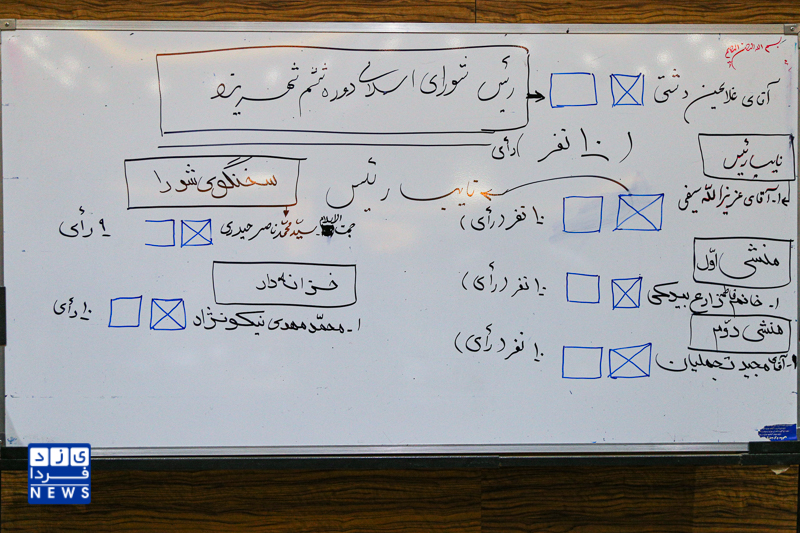 بسم الله الرحمن الرحیم
رئیس شورای اسلامی دوره ششم شهر یزد
آقای غلامحسین دشتی
(۱۰ نفر رأی)
نایب رئیس
نایب رئیس
۱- آقای عزیزالله سیفی
۱۰ نفر (رأی)
سخنگوی شورا
حجت الاسلام سید محمد ناصر حیدری
۹ رأی
منشی اوّل
۱- خانم فاطمه زارع بیدکی
۱۰ نفر (رأی)
خزانه دار
۱- محمّد مهدی نیکونژاد
۱۰ رأی
منشی دوّم
۱- آقای مجید تجملیان
۱۰ نفر (رأی)
یزد
فردا
NEWS